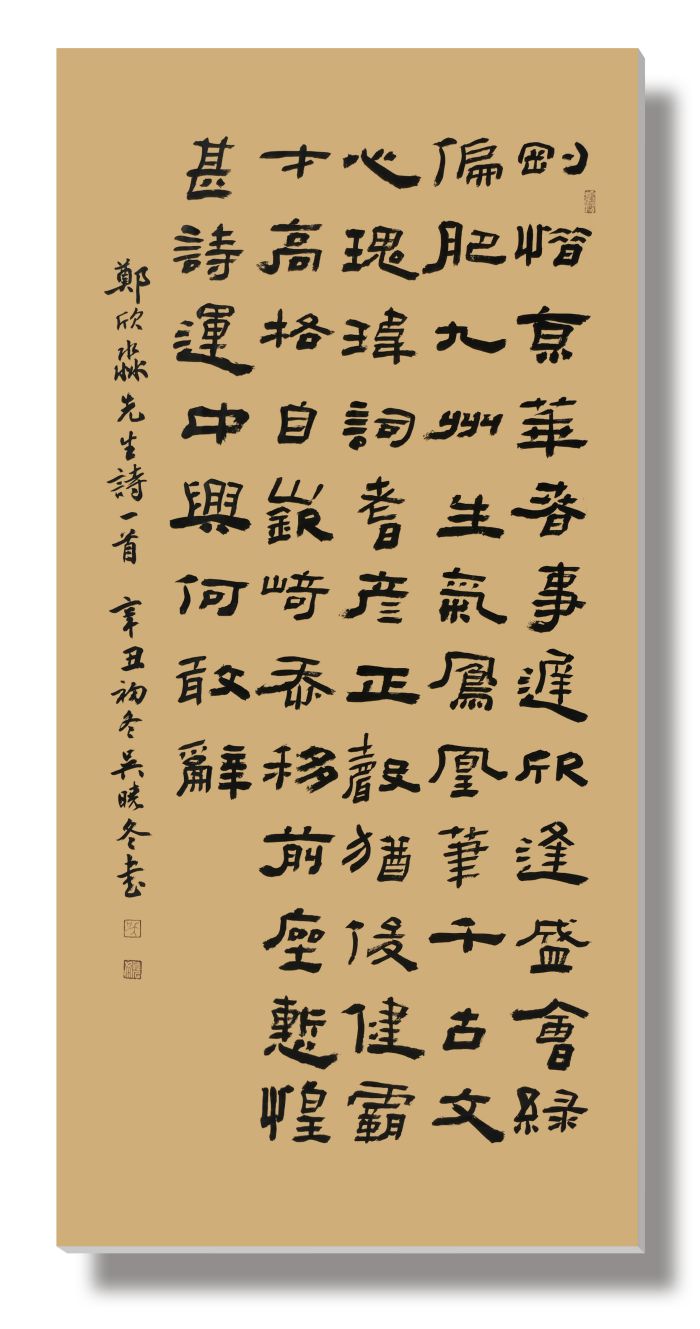 剛惜京華春事遲欣逢盛會綠
偏肥九州生氣鳳凰筆千古文
心瑰瑋詞耆彥正聲猶後健霸
才高格自嶔崎忝移前座慙惶
甚詩運中興何敢辭
鄭欣淼先生詩一首 辛丑初冬吳曉冬書